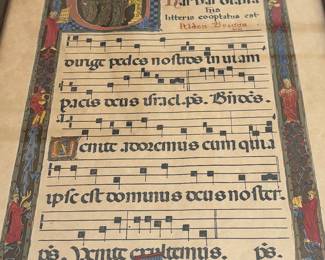 his
litteris cooptatus est
dirige pedes nostros in viam
pacis deus israel. ps. Bn̄dc̄s.
Venite adoremus eum quia
ipse est dominus deus noster.
ps. Venite exultemus. ps.